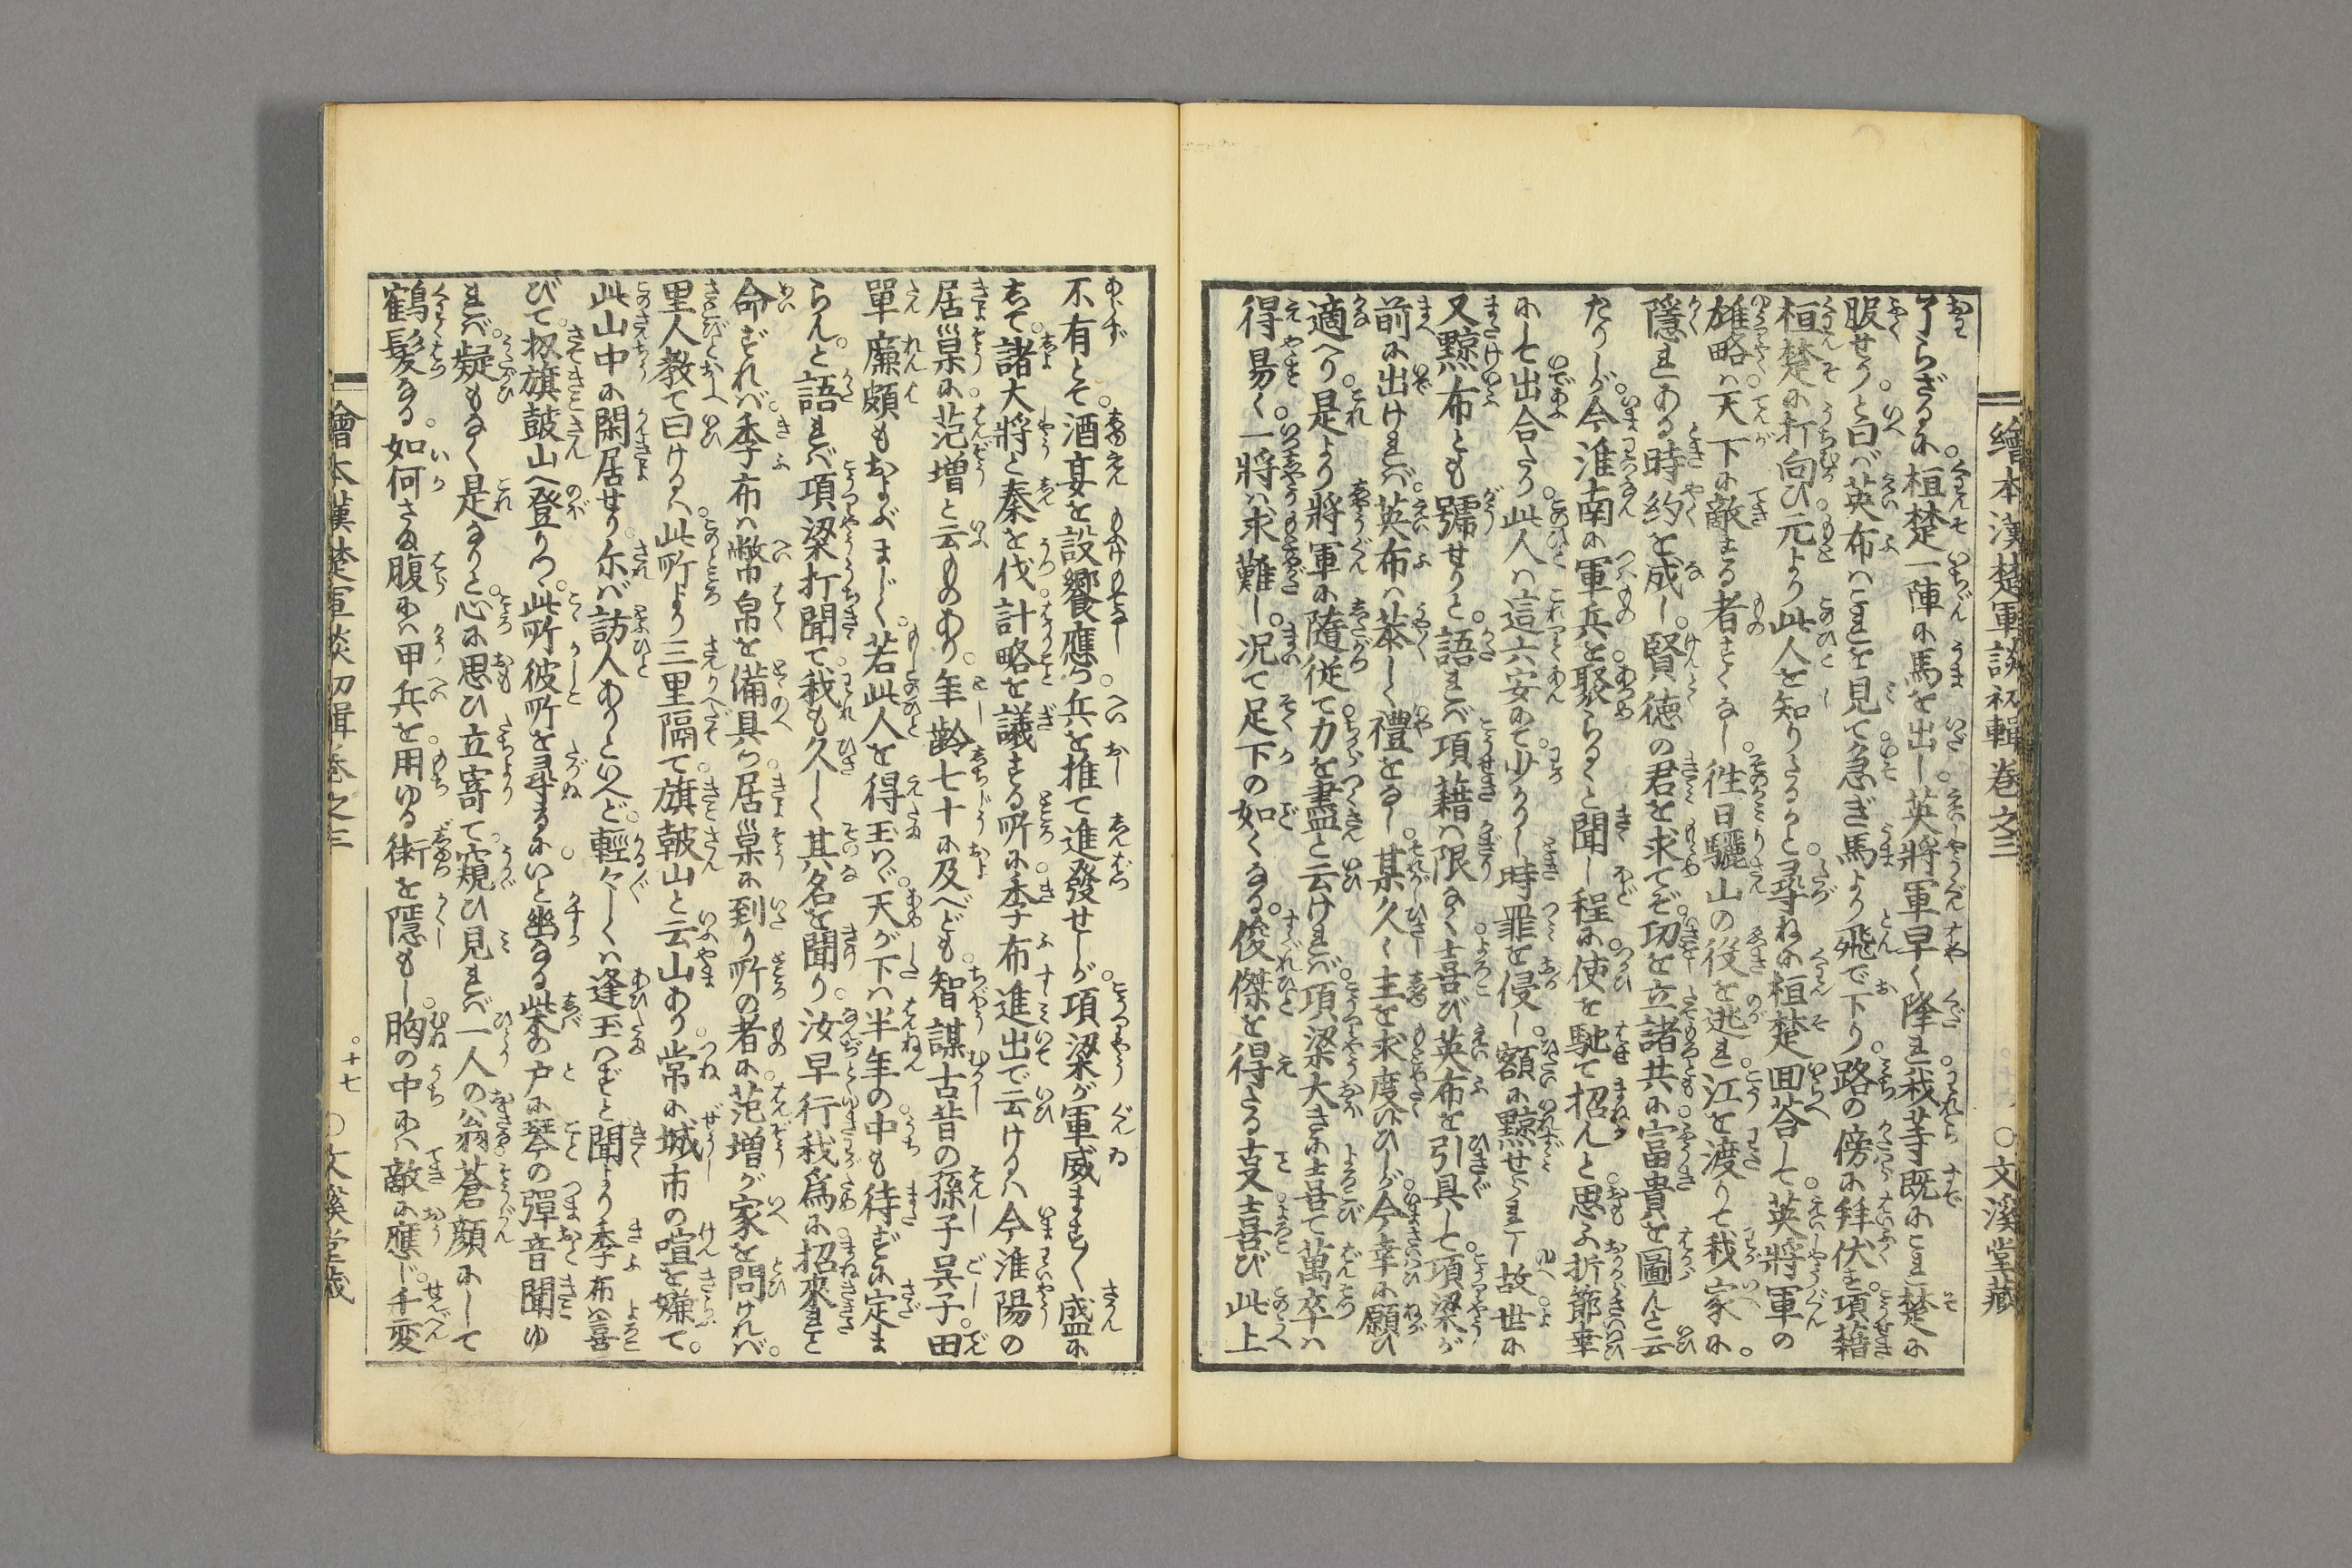 繪本漢楚軍談初輯巻之三
○文溪堂藏
了らざるに桓楚一陣に馬を出し英將軍早く降れ我等既にこれ楚に
服せりと曰ば英布はこれを見て急ぎ馬より飛で下り路の傍に拜伏を項藉
桓楚に打向ひ元より此人を知りたるかと尋ねに桓楚回荅して英將軍の
雄略は天下に敵する者すくなし徃日驪山の役を逃れ江を渡りて我家に
隱れある時約を成し賢徳の君を求てぞ功を立諸共に富貴を圖んと云
たりしが今淮南に軍兵を聚らるゝと聞し程に使を馳て招んと思ふ折節幸
にして出合たり此人は這六安にて少かりし時罪を侵し額に黥せられし故世に
又黥布とも號せりと語れば項藉は限なく喜び英布を引具して項梁が
前に出けれは英布は恭しく禮をなし某久く主を求度ひしが今幸に願ひ
適へり是より將軍に隨従て力を盡んと云けれは項梁大きに喜で萬卒は
得易く一將は求難し况て足下の如くなる俊傑を得たる支喜び此上
不有とそ酒宴を設饗應つ兵を推て進發せしが項梁が軍威ますく盛に
して諸大將と秦を伐計略を議する所に季布進出で云けるは今淮陽の
居巢に范増と云ものあり年齢七十に及べども智謀古昔の孫子吳子田
單廉頗もおよぶまじく若此人を得玉はゞ天が下は半年の中も待ずに定ま
らんと語れば項梁打聞て我も久しく其名を聞り汝早行我爲に招來れと
命ずれば季布は幣帛を備具つ居巢に到り所の者に范増が家を問ければ
里人教て曰けるは此所より三里隔て旗皷山と云山あり常に城市の喧を嫌て
此山中に閑居せり尓ば訪人ありといへど輕々しくは逢玉はずと聞より季布は喜
びて扨旗皷山へ登りつ此所彼所を尋るにいと幽なる柴の戸に琴の彈音聞ゆ
れば疑もなく是なりと心に思ひ立寄て窺ひ見れば一人の翁蒼顔にして
鶴髮なる如何さま腹には甲兵を用ゆる術を隱もし胸の中には敵に應じ千変
繪本漢楚軍談初輯巻之三
○十七
○文溪堂藏